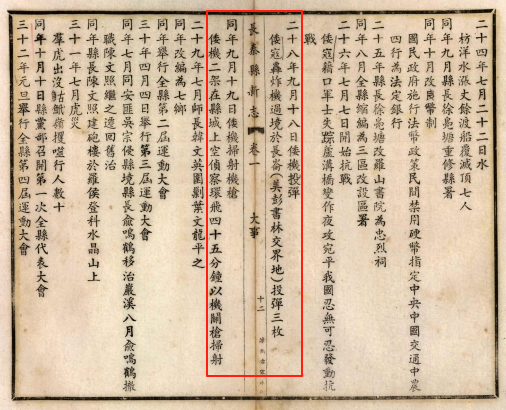 二十四年七月二十二日水
枋洋水漲大餘渡船覆滅頂七人
同年九月縣長徐亮塘重修縣署
同年十月改幣制
國民政府施行法幣政策民間禁用硬幣指定中央中國交通中農
四行為法定銀行
二十五年縣長徐亮塘改羅山書院為忠烈祠
同年八月全縣編為三區改設區署
二十六年七月七日開始抗戰
倭寇藉口軍士失踪蘆溝橋變作夜攻宛平我國忍無可忍發動抗
戰
二十八年九月十八日倭機投彈
倭寇轟炸機過境於長崙(吳彭書林交界地)投彈三枚
長泰縣新志
卷一
大事
十二
同年九月十九日倭機掃射機槍
倭機二架在縣城上空偵察環飛四十五分鐘以機關槍掃射
二十九年七月師長韓文英圍剿葉文龍平之
同年改編為七鄉
同年舉行全縣第二屆運動大會
三十年四月四日舉行第三屆運動大會
同年七月同安匪吳宗保縣境縣長俞鳴鶴移治巖溪八月俞鳴鶴撤
職陳文照繼之遷回舊治
同年縣長陳文照建砲樓於羅侯登科水晶山上
三十一年七月虎災
羣虎出沒鴣鵝嶺攫噬行人數十
同年十月十日縣黨部召開第一次全縣代表大會
三十二年元旦舉行全縣第四屆運動大會